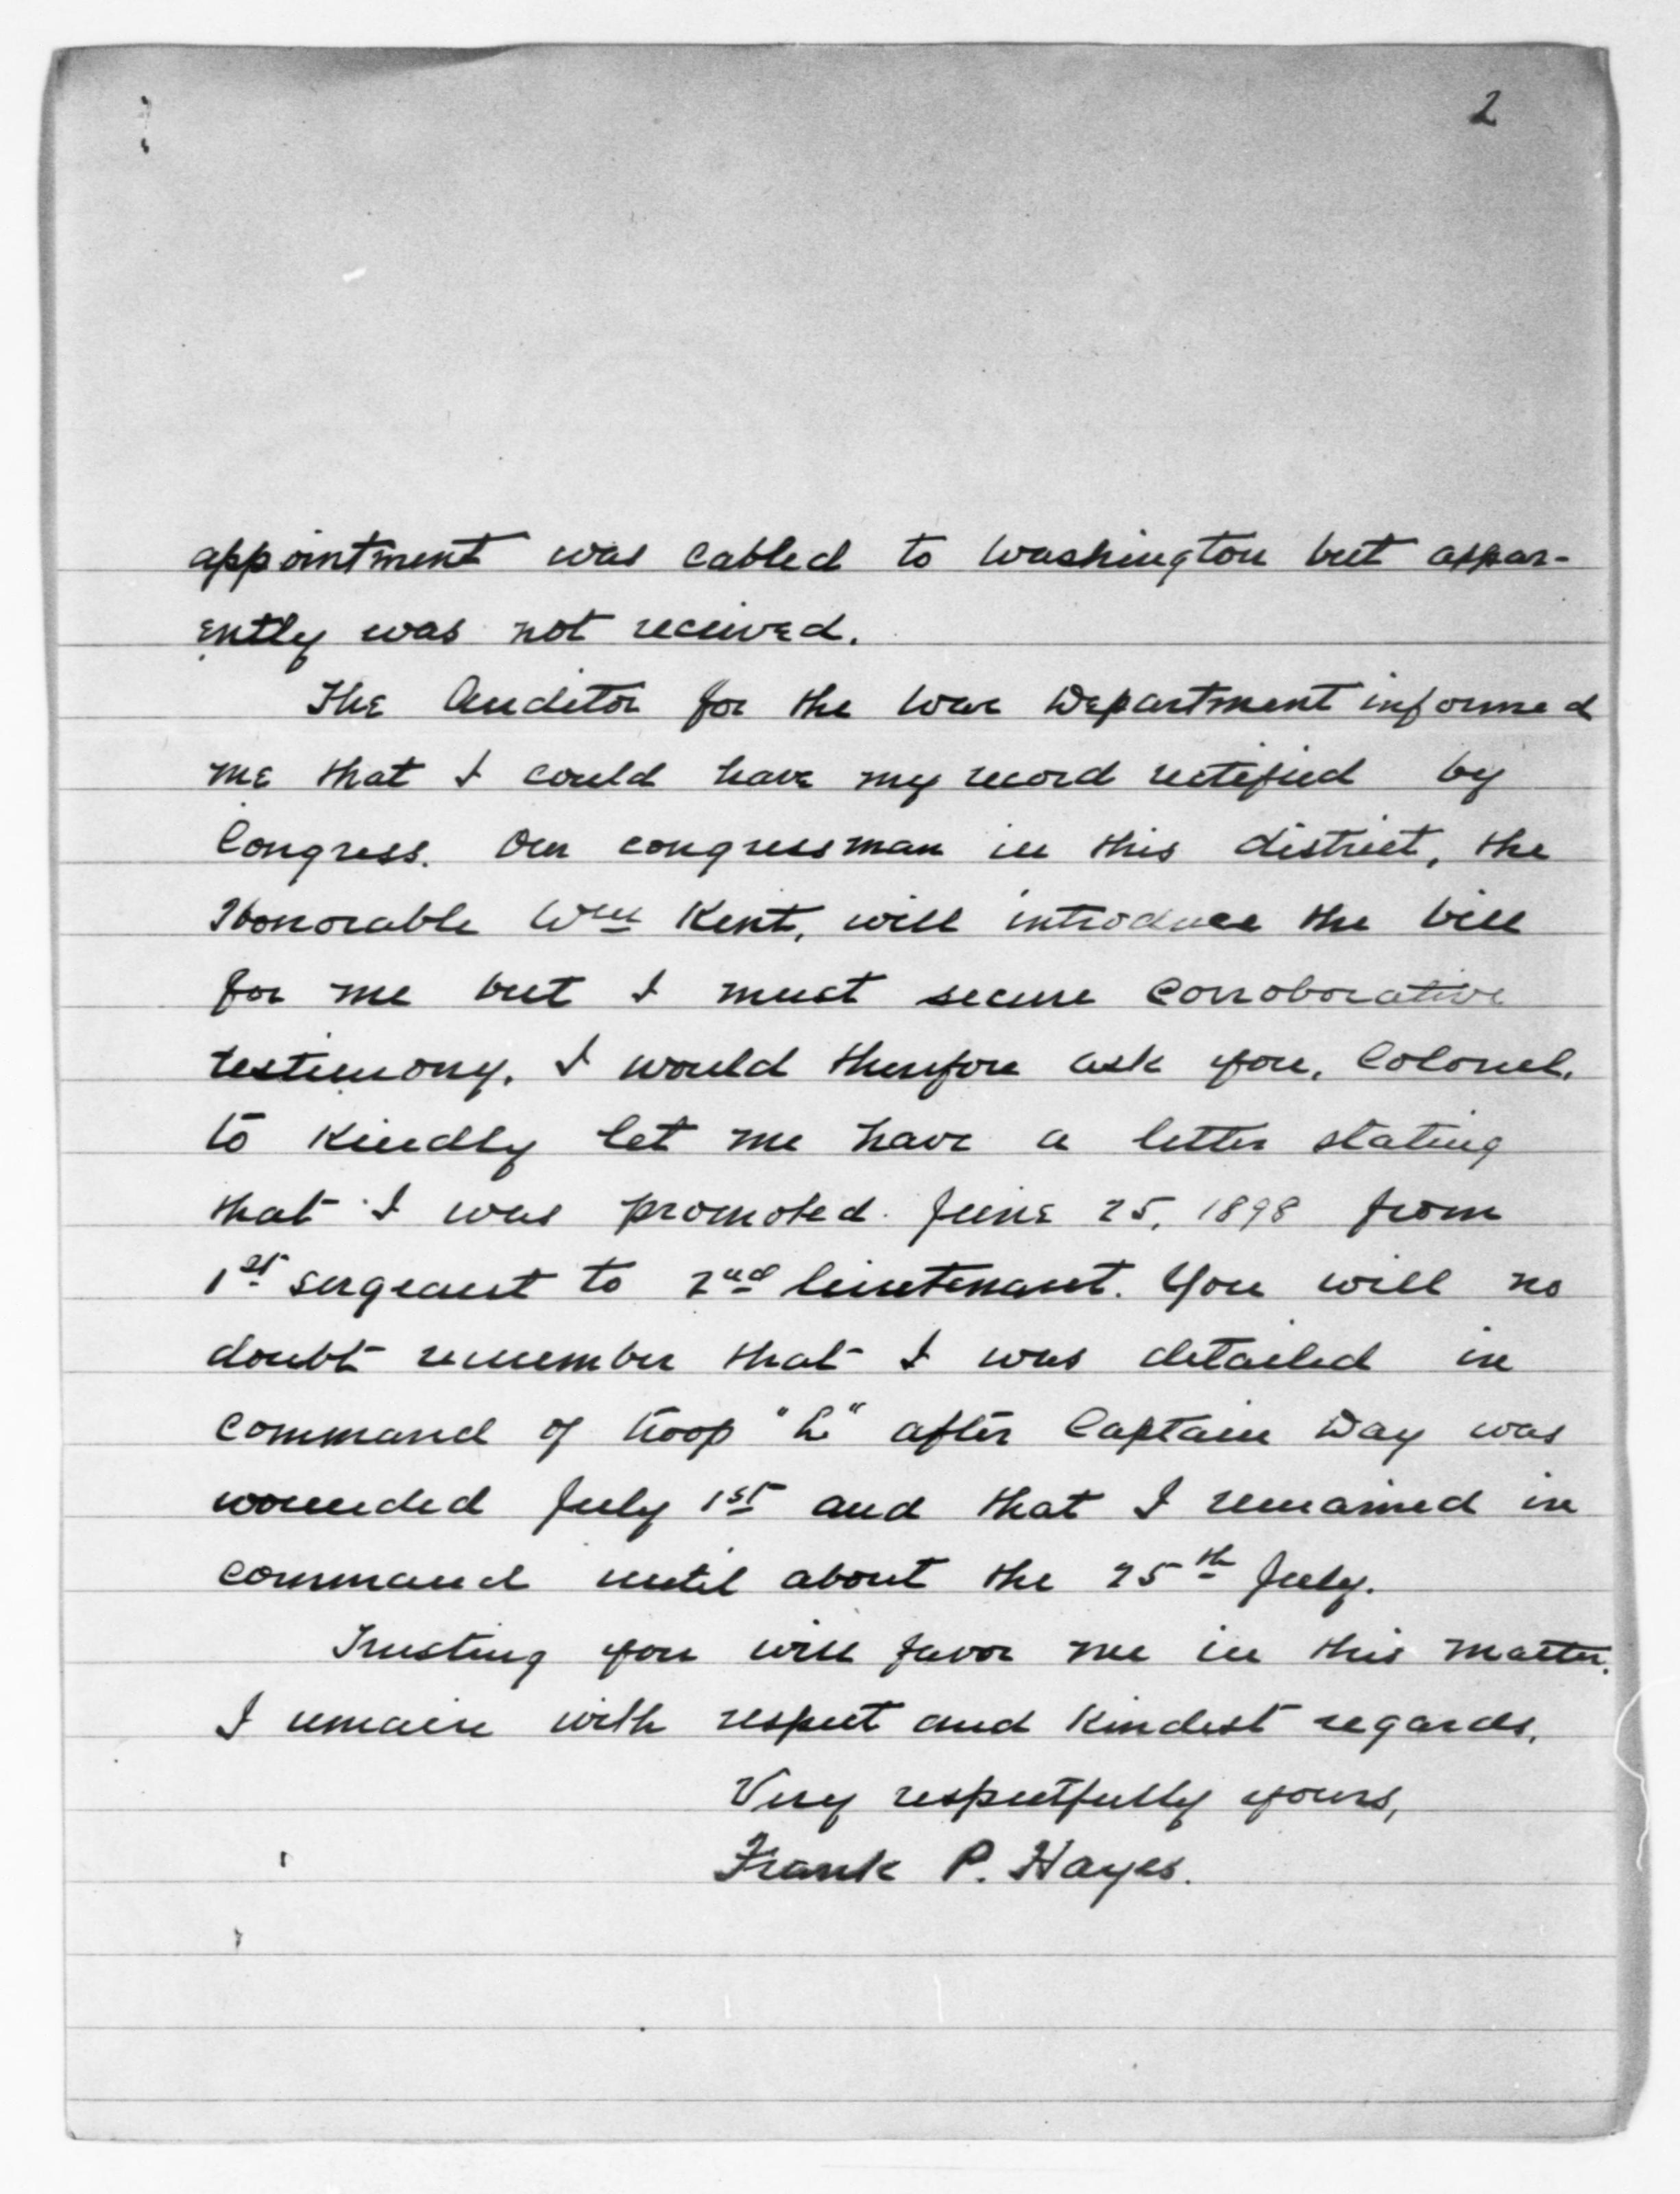 2
appointment was cabled to Washington but appar-
ently was not received.
The Auditor for the War Department informed
me that I could have my record rectified by
Congress. Our congressman in this district, the
Honorable Wm Kent, will introduce the bill
for me but I must secure corroborative
testimony. I would therefore ask you, Colonel,
to kindly let me have a letter stating
that I was promoted June 25, 1898 from
1st sergeant to 2nd lieutenant. You will no
doubt remember that I was detailed in
command of troop "L" after Captain Day was
wounded July 1st and that I remained in
command until about the 25th July.
Trusting you will favor me in this matter.
I remain with respect and kindest regards,
Very respectfully yours,
Frank P. Hayes.